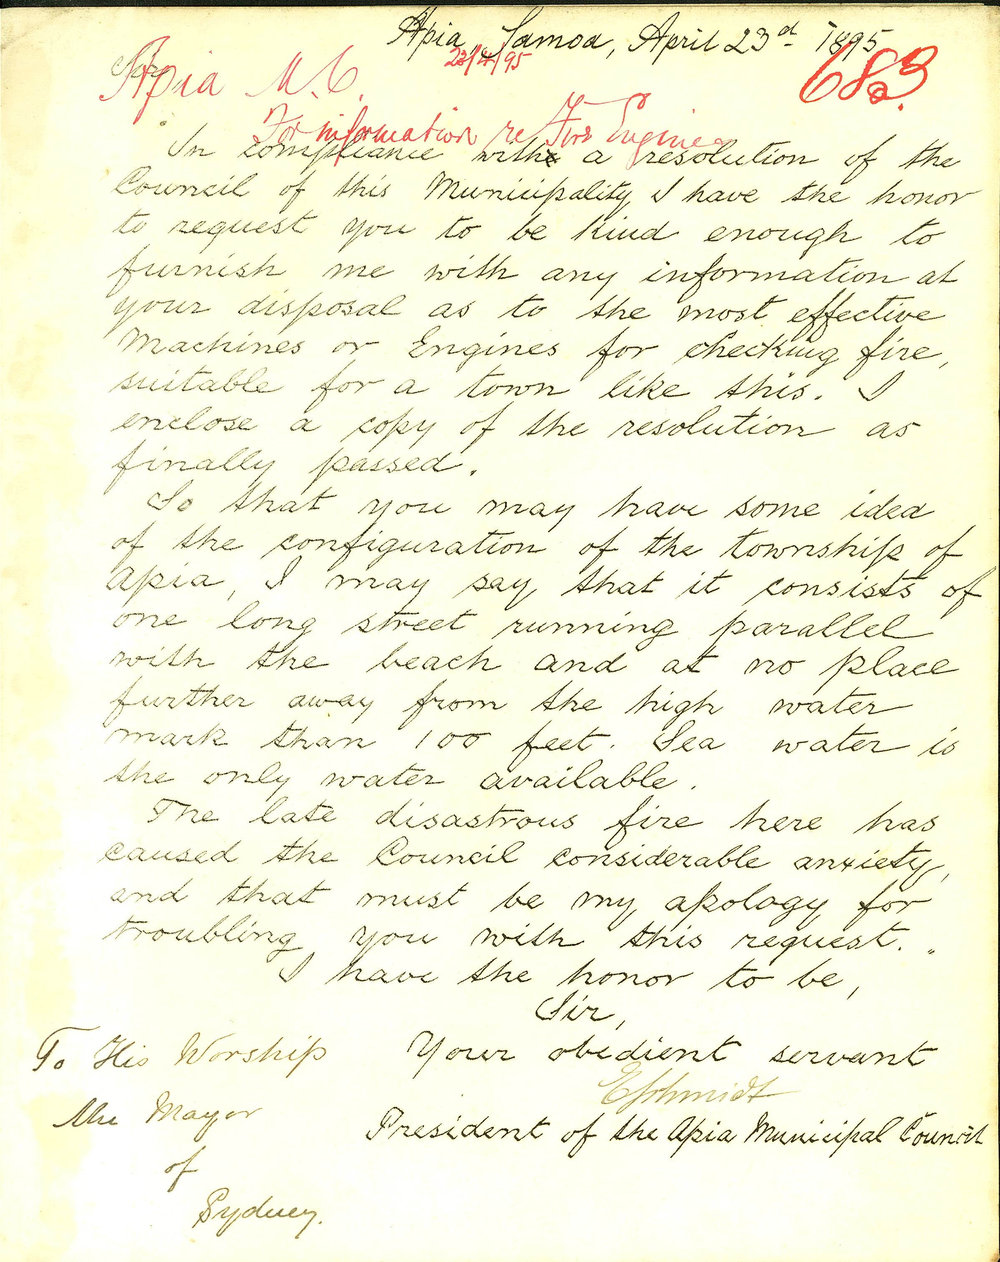 Apia, Samoa, April 23d 1895
Sir,
Apia M.C. 23/4/95 683
For information re Fire Engines
In compliance with a resolution of the
Council of this Municipality I have the honor
to request you to be kind enough to
furnish me with any information at
your disposal as to the most effective
Machines or Engines for checking fire,
suitable for a town like this. I
enclose a copy of the resolution as
finally passed.
So that you may have some idea
of the configuration of the township of
Apia, I may say that it consists of
one long street running parallel
with the beach and at no place
further away from the high water
mark than 100 feet. Sea water is
the only water available.
The late disastrous fire here has
caused the Council considerable anxiety,
and that must be my apology for
troubling you with this request.
I have the honor to be,
Sir,
Your obedient servant
ESchmidt
President of the Apia Municipal Council
To His Worship
The Mayor
of
Sydney.